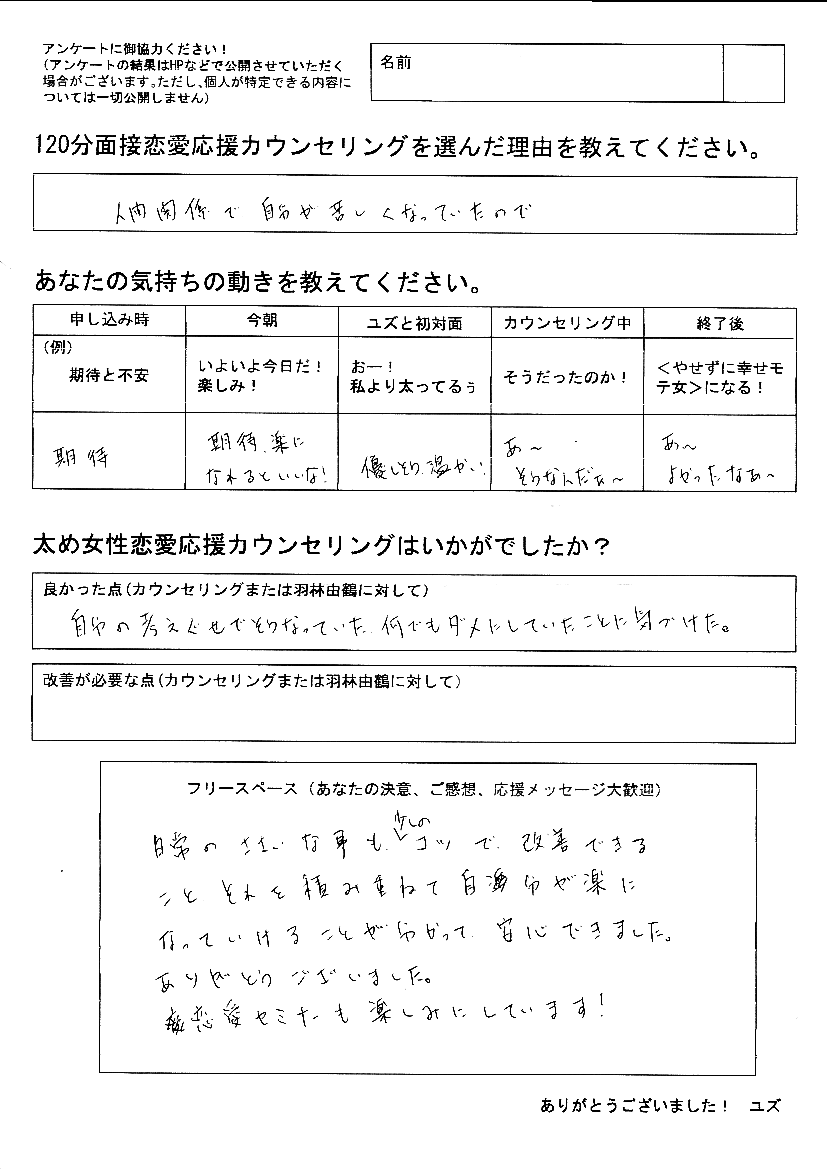 アンケートに御協力ください！
（アンケートの結果はHPなどで公開させていただく
場合がございます。ただし、個人が特定できる内容に
ついては一切公開しません）
名前
120分面接恋愛応援カウンセリングを選んだ理由を教えてください。
人間関係で 自分が苦しくなっていたので
あなたの気持ちの動きを教えてください。
申し込み時 今朝 ユズと初対面 カウンセリング中 終了後
（例）
期待と不安
いよいよ今日だ！
楽しみ！
おー！
私より太ってるぅ
そうだったのか！
＜やせずに幸せモ
テ女＞になる！
期待
期待、楽に
なれるといいな！
優しそう、温かい
あ～
そうなんだぁ～
あ～
よかったなぁ～
太め女性恋愛応援カウンセリングはいかがでしたか？
良かった点（カウンセリングまたは羽林由鶴に対して）
自分の考えぐせでそうなっていた、何でもダメにしていたことに気づけた。
改善が必要な点（カウンセリングまたは羽林由鶴に対して）
フリースペース（あなたの決意、ご感想、応援メッセージ大歓迎）
日常のささいな事も、少しのコツで、改善できる
こと それを積み重ねて自分が楽に
なっていけることが分かって、安心できました。
ありがとうございました。
恋愛セミナーも楽しみにしています！
ありがとうございました！ ユズ